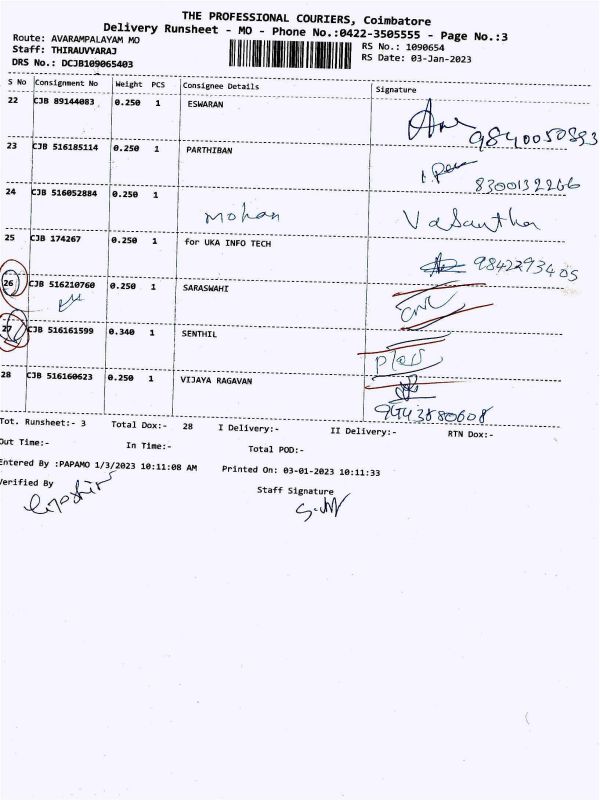 THE PROFESSIONAL COURIERS, Coimbatore
Delivery Runsheet - MO - Phone No.:0422-3505555 - Page No.:3
Route: AVARAMPALAYAM MO
Staff: THIRAUVYARAJ
DRS No.: DCJB109065403
RS No.: 1090654
RS Date: 03-Jan-2023
S No Consignment No Weight PCS Consignee Details Signature
22 CJB 89144083 0.250 1 ESWARAN
9840050893
23 CJB 516185114 0.250 1 PARTHIBAN
8300132266
24 CJB 516052884 0.250 1
Mohan Vasantha
25 CJB 174267 0.250 1 for UKA INFO TECH
9842293405
26 CJB 516210760 0.250 1 SARASWAHI
27 CJB 516161599 0.340 1 SENTHIL
28 CJB 516160623 0.250 1 VIJAYA RAGAVAN
9443880608
Tot. Runsheet:- 3 Total Dox:- 28 I Delivery:- II Delivery:- RTN Dox:-
Out Time:- In Time:- Total POD:-
Entered By :PAPAMO 1/3/2023 10:11:08 AM Printed On: 03-01-2023 10:11:33
Verified By Staff Signature